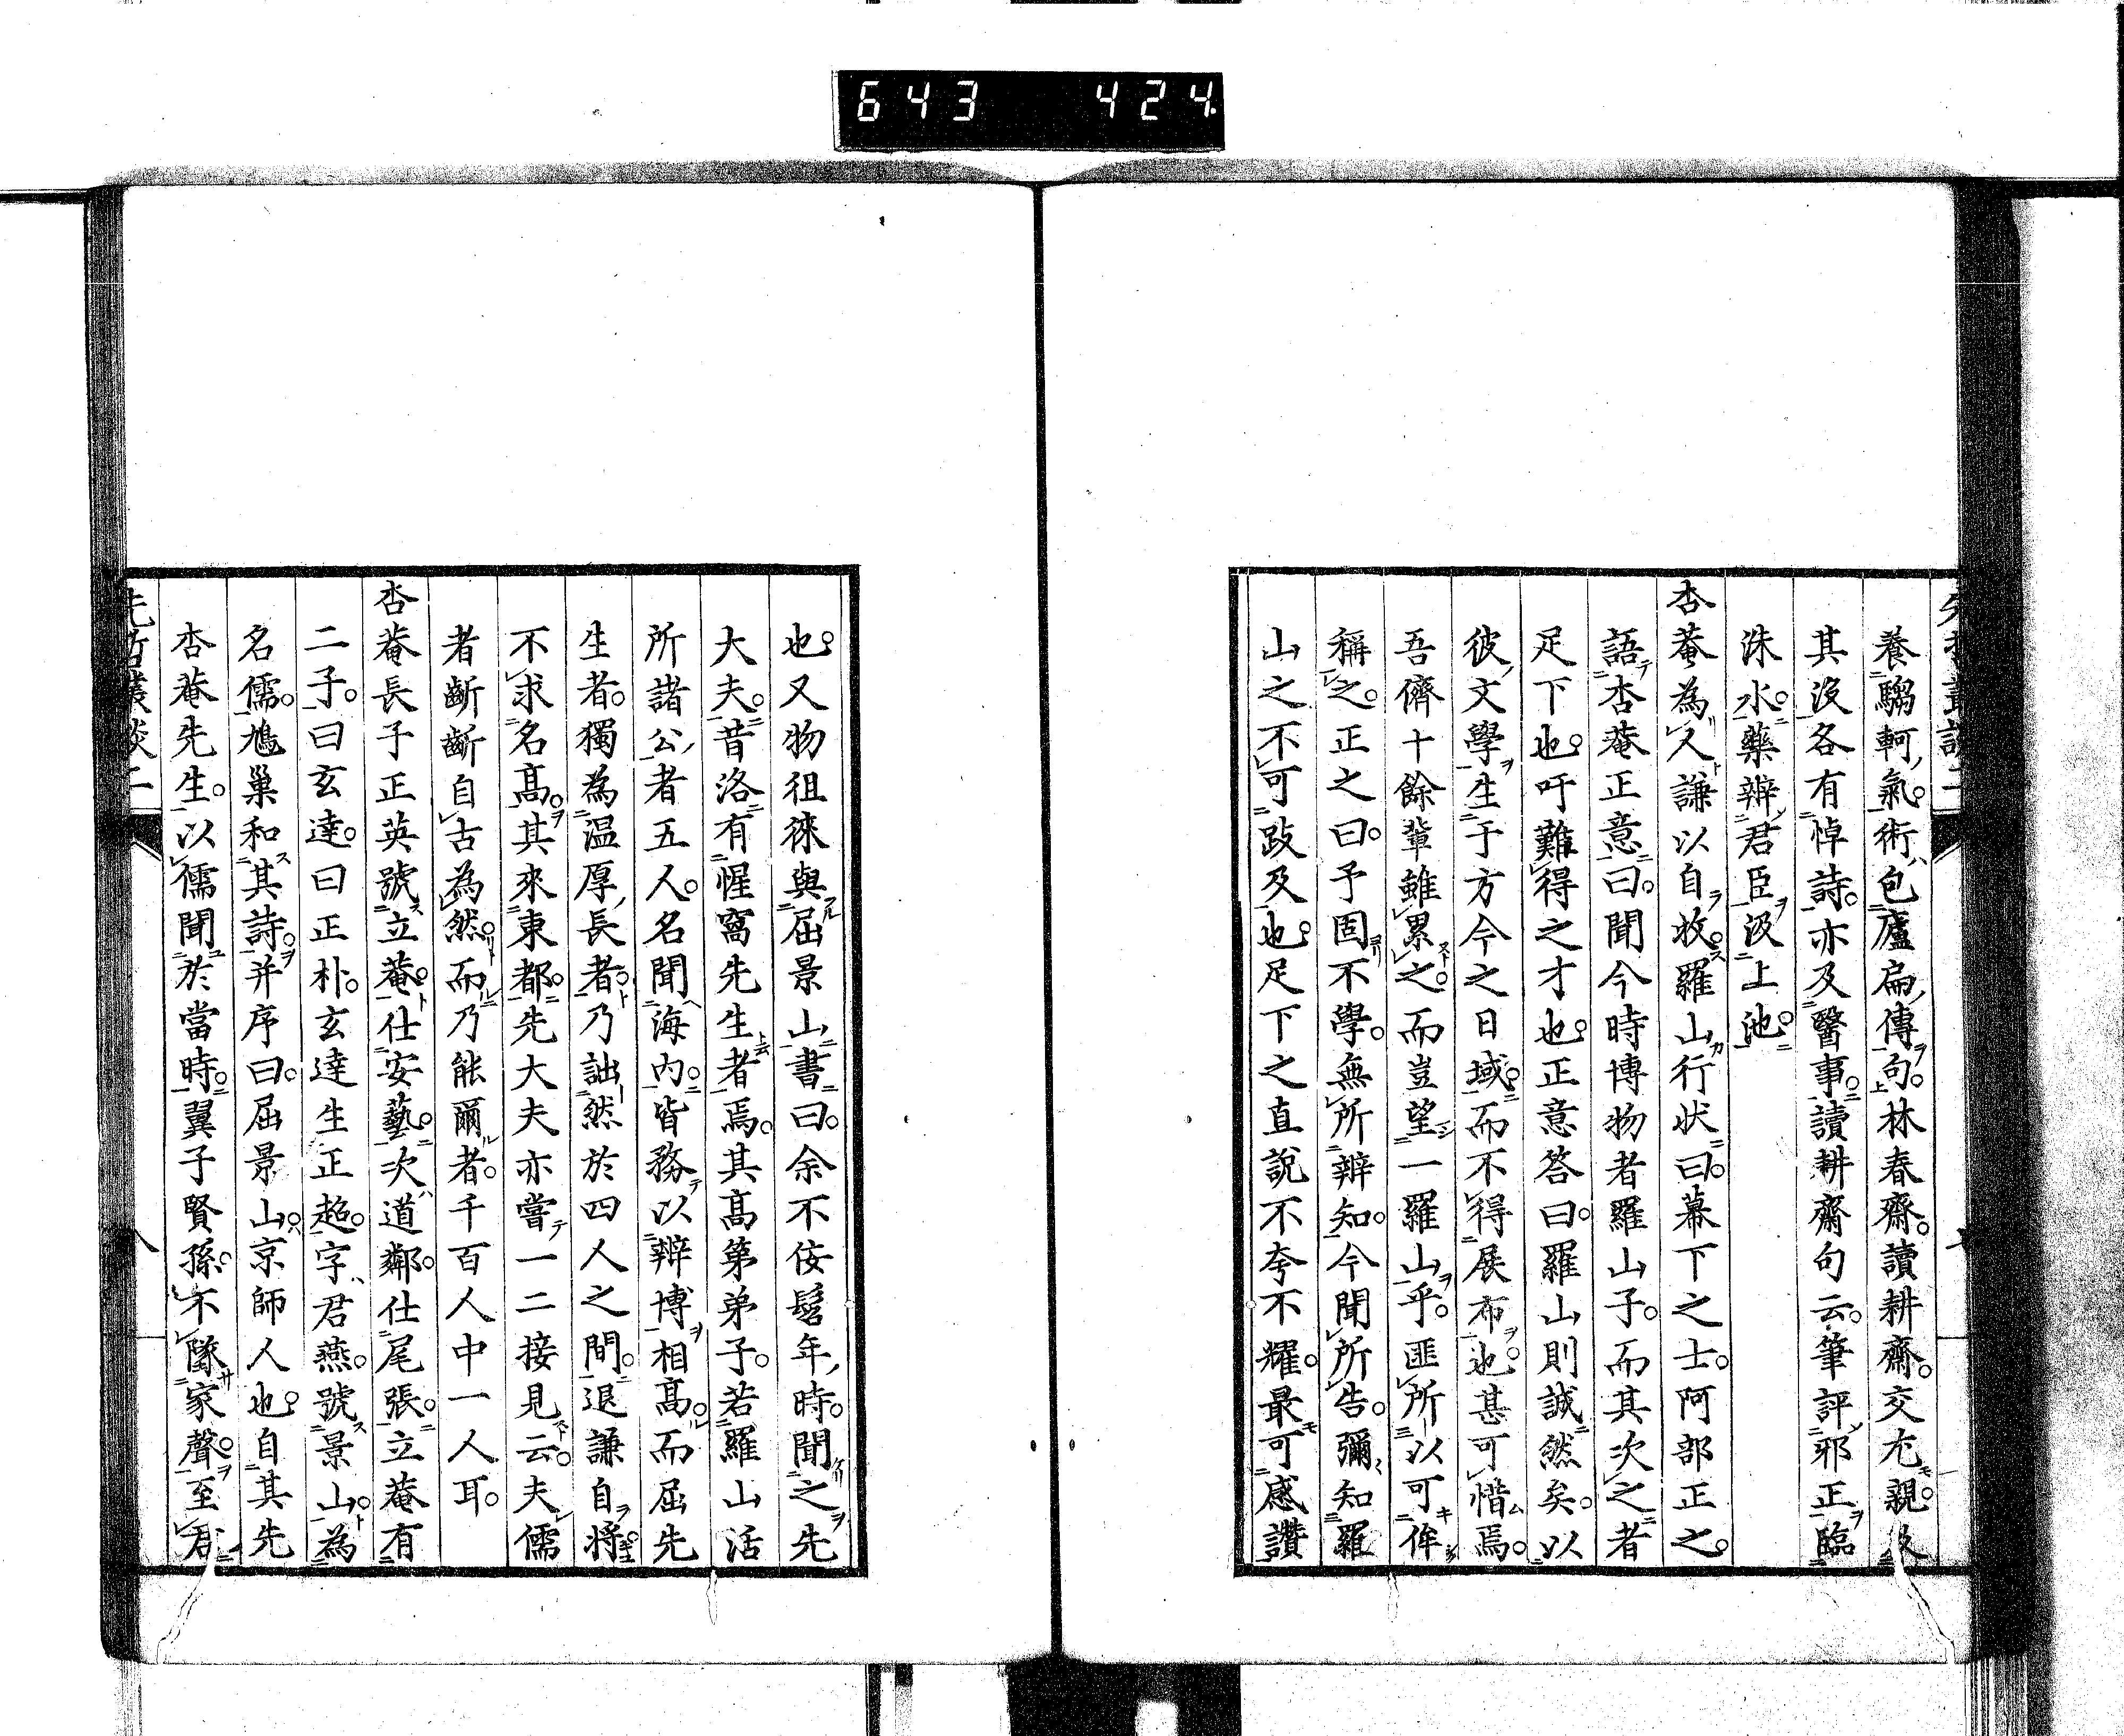 643 424
養騶軻氣術包廬扁傳句林春齋讀耕齋交尤親
其沒各有悼詩亦及醫事讀耕齋句云筆評邪正臨
洙水藥辨君臣汲上池
杏菴為人謙以自牧羅山行狀曰幕下之士阿部正之
語杏菴正意曰聞今時博物者羅山子而其次之者
足下也吁難得之才也正意答曰羅山則誠然矣以
彼文學生于方今之日域而不得展布也甚可惜焉
吾儕十餘輩雖累之而豈望一羅山乎匪所以可侔
稱之正之曰予固不學無所辨知今聞所告彌知羅
山之不可跂及也足下之直說不夸不耀最可感讚
也又物徂徠與屈景山書曰余不佞髫年時聞之先
大夫昔洛有惺窩先生者焉其高第弟子若羅山活
所諸公者五人名聞海內皆務以辨博相高而屈先
生者獨為温厚長者乃詘然於四人之間退謙自將
不求名高其來東都先大夫亦嘗一二接見云夫儒
者齗齗自古為然而乃能爾者千百人中一人耳
杏菴長子正英號立菴仕安藝次道鄰仕尾張立菴有
二子曰玄達曰正朴玄達生正超字君燕號景山為
名儒鳩巢和其詩并序曰屈景山京師人也自其先
杏菴先生以儒聞於當時翼子賢孫不隊家聲至君
先哲叢談二 八